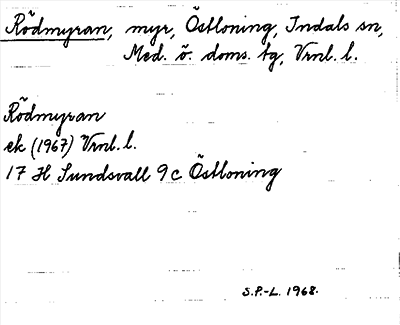 Rödmyran, myr, Östloning, Indals sn,
Med. ö. doms. tg, Vrnl. l.
Rödmyran
ek (1967) Vrnl. l.
17 H Sundsvall 9 c Östloning
S.P.-L. 1968.